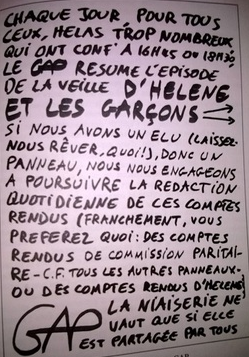 CHAQUE JOUR, POUR TOUS
CEUX, HELAS TROP NOMBREUX
QUI ONT CONF' A 16H45 OU 18H30,
LE GAP RESUME L'EPISODE
DE LA VEILLE D'HELENE
ET LES GARÇONS
SI NOUS AVONS UN ELU (LAISSEZ-
NOUS RÊVER, QUOI!), DONC UN
PANNEAU, NOUS NOUS ENGAGEONS
A POURSUIVRE LA REDACTION
QUOTIDIENNE DE CES COMPTES
RENDUS (FRANCHEMENT, VOUS
PREFEREZ QUOI: DES COMPTES
RENDUS DE COMMISSION PARITAI-
RE - C.F. TOUS LES AUTRES PANNEAUX-
OU DES COMPTES RENDUS D'HELENE)
GAP LA NIAISERIE NE
VAUT QUE SI ELLE
EST PARTAGEE PAR TOUS